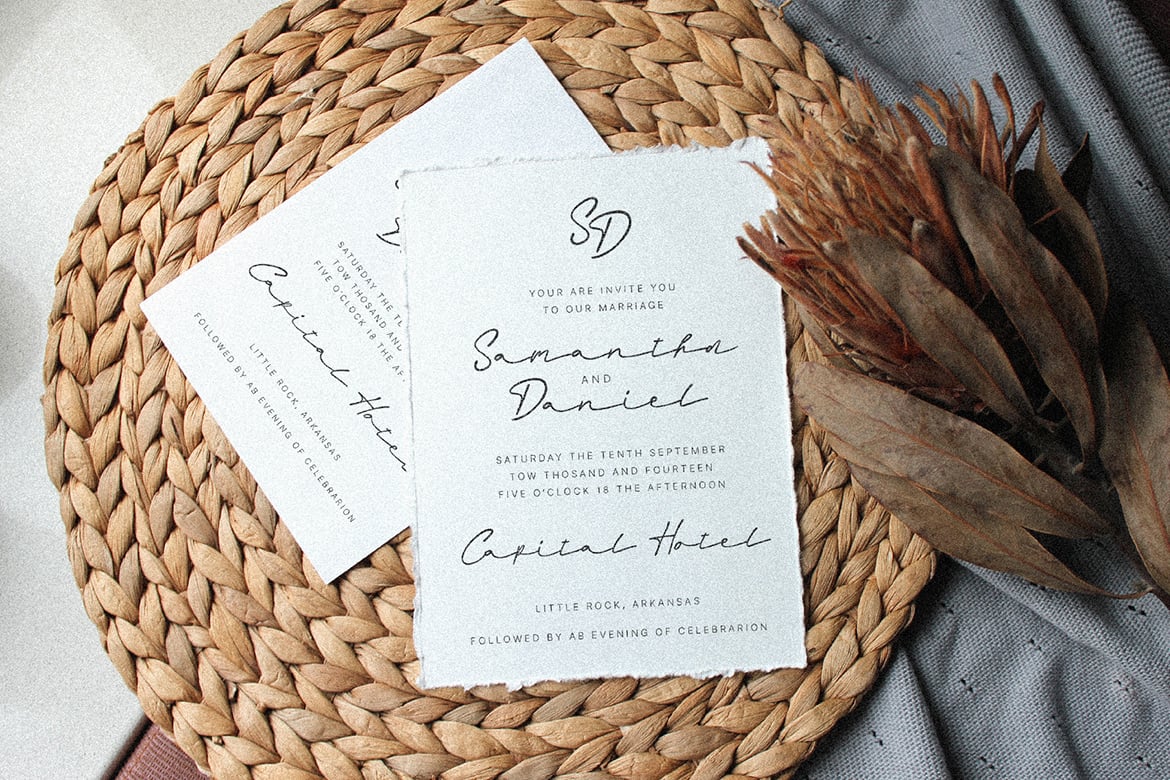 SD
YOUR ARE INVITE YOU
TO OUR MARRIAGE
Samantha
AND
Daniel
SATURDAY THE TENTH SEPTEMBER
TOW THOSAND AND FOURTEEN
FIVE O'CLOCK 18 THE AFTERNOON
Capital Hotel
LITTLE ROCK, ARKANSAS
FOLLOWED BY A8 EVENING OF CELEBRARION
SATURDAY THE
TOW THOSAND
FIVE O'CLOCK 18 THE
Capital Hotel
LITTLE ROCK, ARKANSAS
FOLLOWED BY A8 EVENING OF CELEBRARION